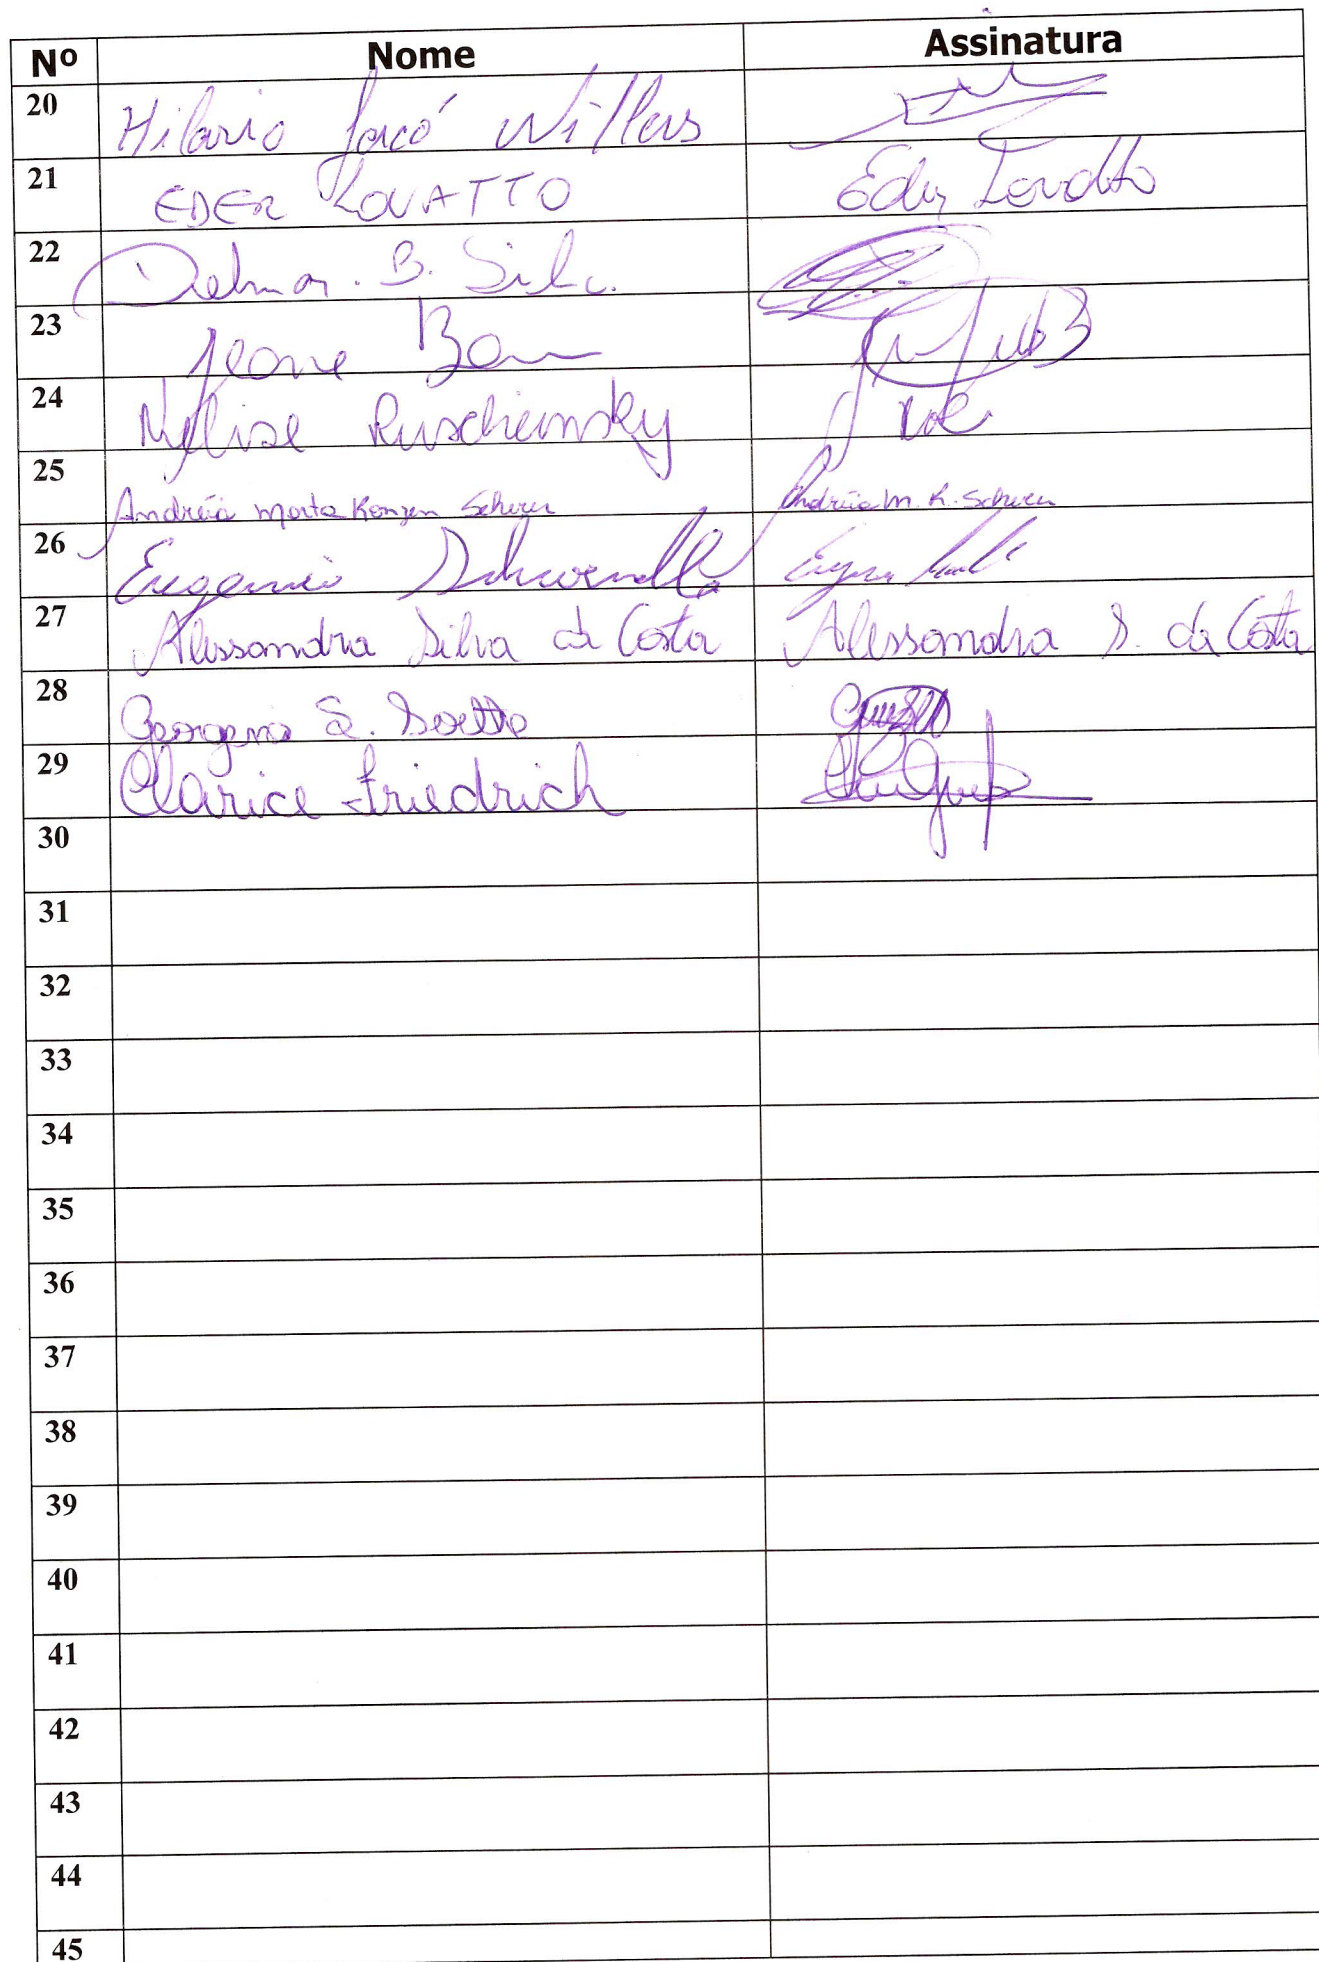 Nº Nome Assinatura
20 Hilario Jacó Willers
21 EDER LOVATTO Eder Lovatto
22 Delmar. B. Silva.
23
24 Nelise Ruscheinsky
25 Andréia Marta Konzen Scherer Andréia M. K. Scherer
26 Eugenio
27 Alessandra Silva da Costa Alessandra S. da Costa
28 S.
29 Clarice Friedrich
30
31
32
33
34
35
36
37
38
39
40
41
42
43
44
45